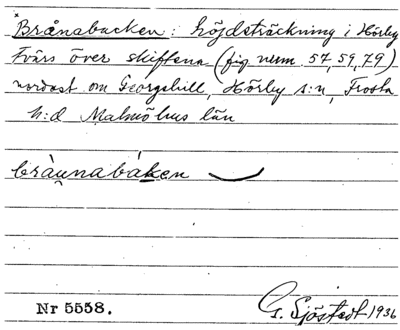 Brånabacken: höjdsträckning i Hörby
tvärs över skiftena (fig num 57, 59, 79)
nordost om Georgshill, Hörby s:n, Frosta
h:d Malmöhus län
bràu̯nabáken
Nr 5558.
G. Sjöstedt 1936